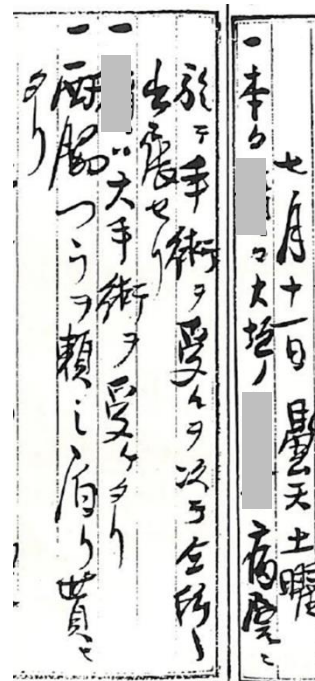 七月十一日 曇天 土曜
一本日 大垣ノ 病院ニ
於テ手術ヲ受ケヲ次テ全所ヘ
出張セリ
一 ハ大手術ヲ受ケタリ
一西脇つうヲ頼ミ泊リ貰ヒ
タリ